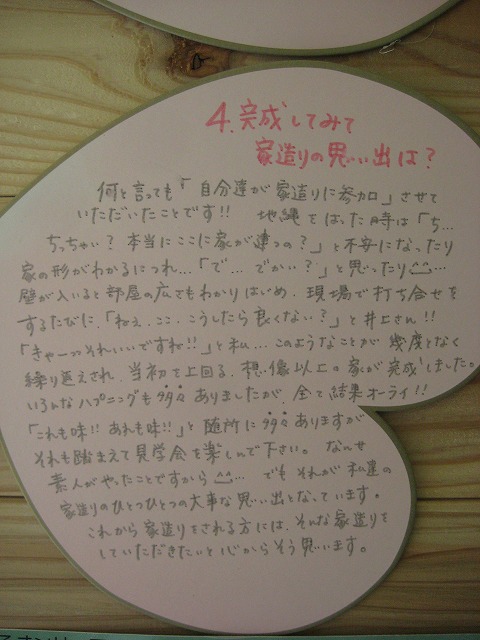 4.完成してみて
家造りの思い出は?
何と言っても「自分達が家造りに参加」させて
いただいたことです!! 地縄をはった時は「ち…
ちっちゃい?本当にここに家が建つの?」と不安になったり
家の形がわかるにつれ…「で…でかい?」と思ったり
壁が入いると部屋の広さもわかりはじめ、現場で打ち合せを
するたびに、「ねぇ、ここ、こうしたら良くない?」と井上さん!!
「きゃーっっそれいいですね!!」と私…このようなことが幾度となく
繰り返えされ、当初を上回る、想像以上の家が完成しました。
いろんなハプニングも多々ありましたが、全て結果オーライ!!
「これも味!!あれも味!!」と随所に多々ありますが
それも踏まえて見学会を楽しんで下さい。なんせ
素人がやったことですから… でもそれが私達の
家造りのひとつひとつの大事な思い出となっています。
これから家造りをされる方には、そんな家造りを
していただきたいと心からそう思います。